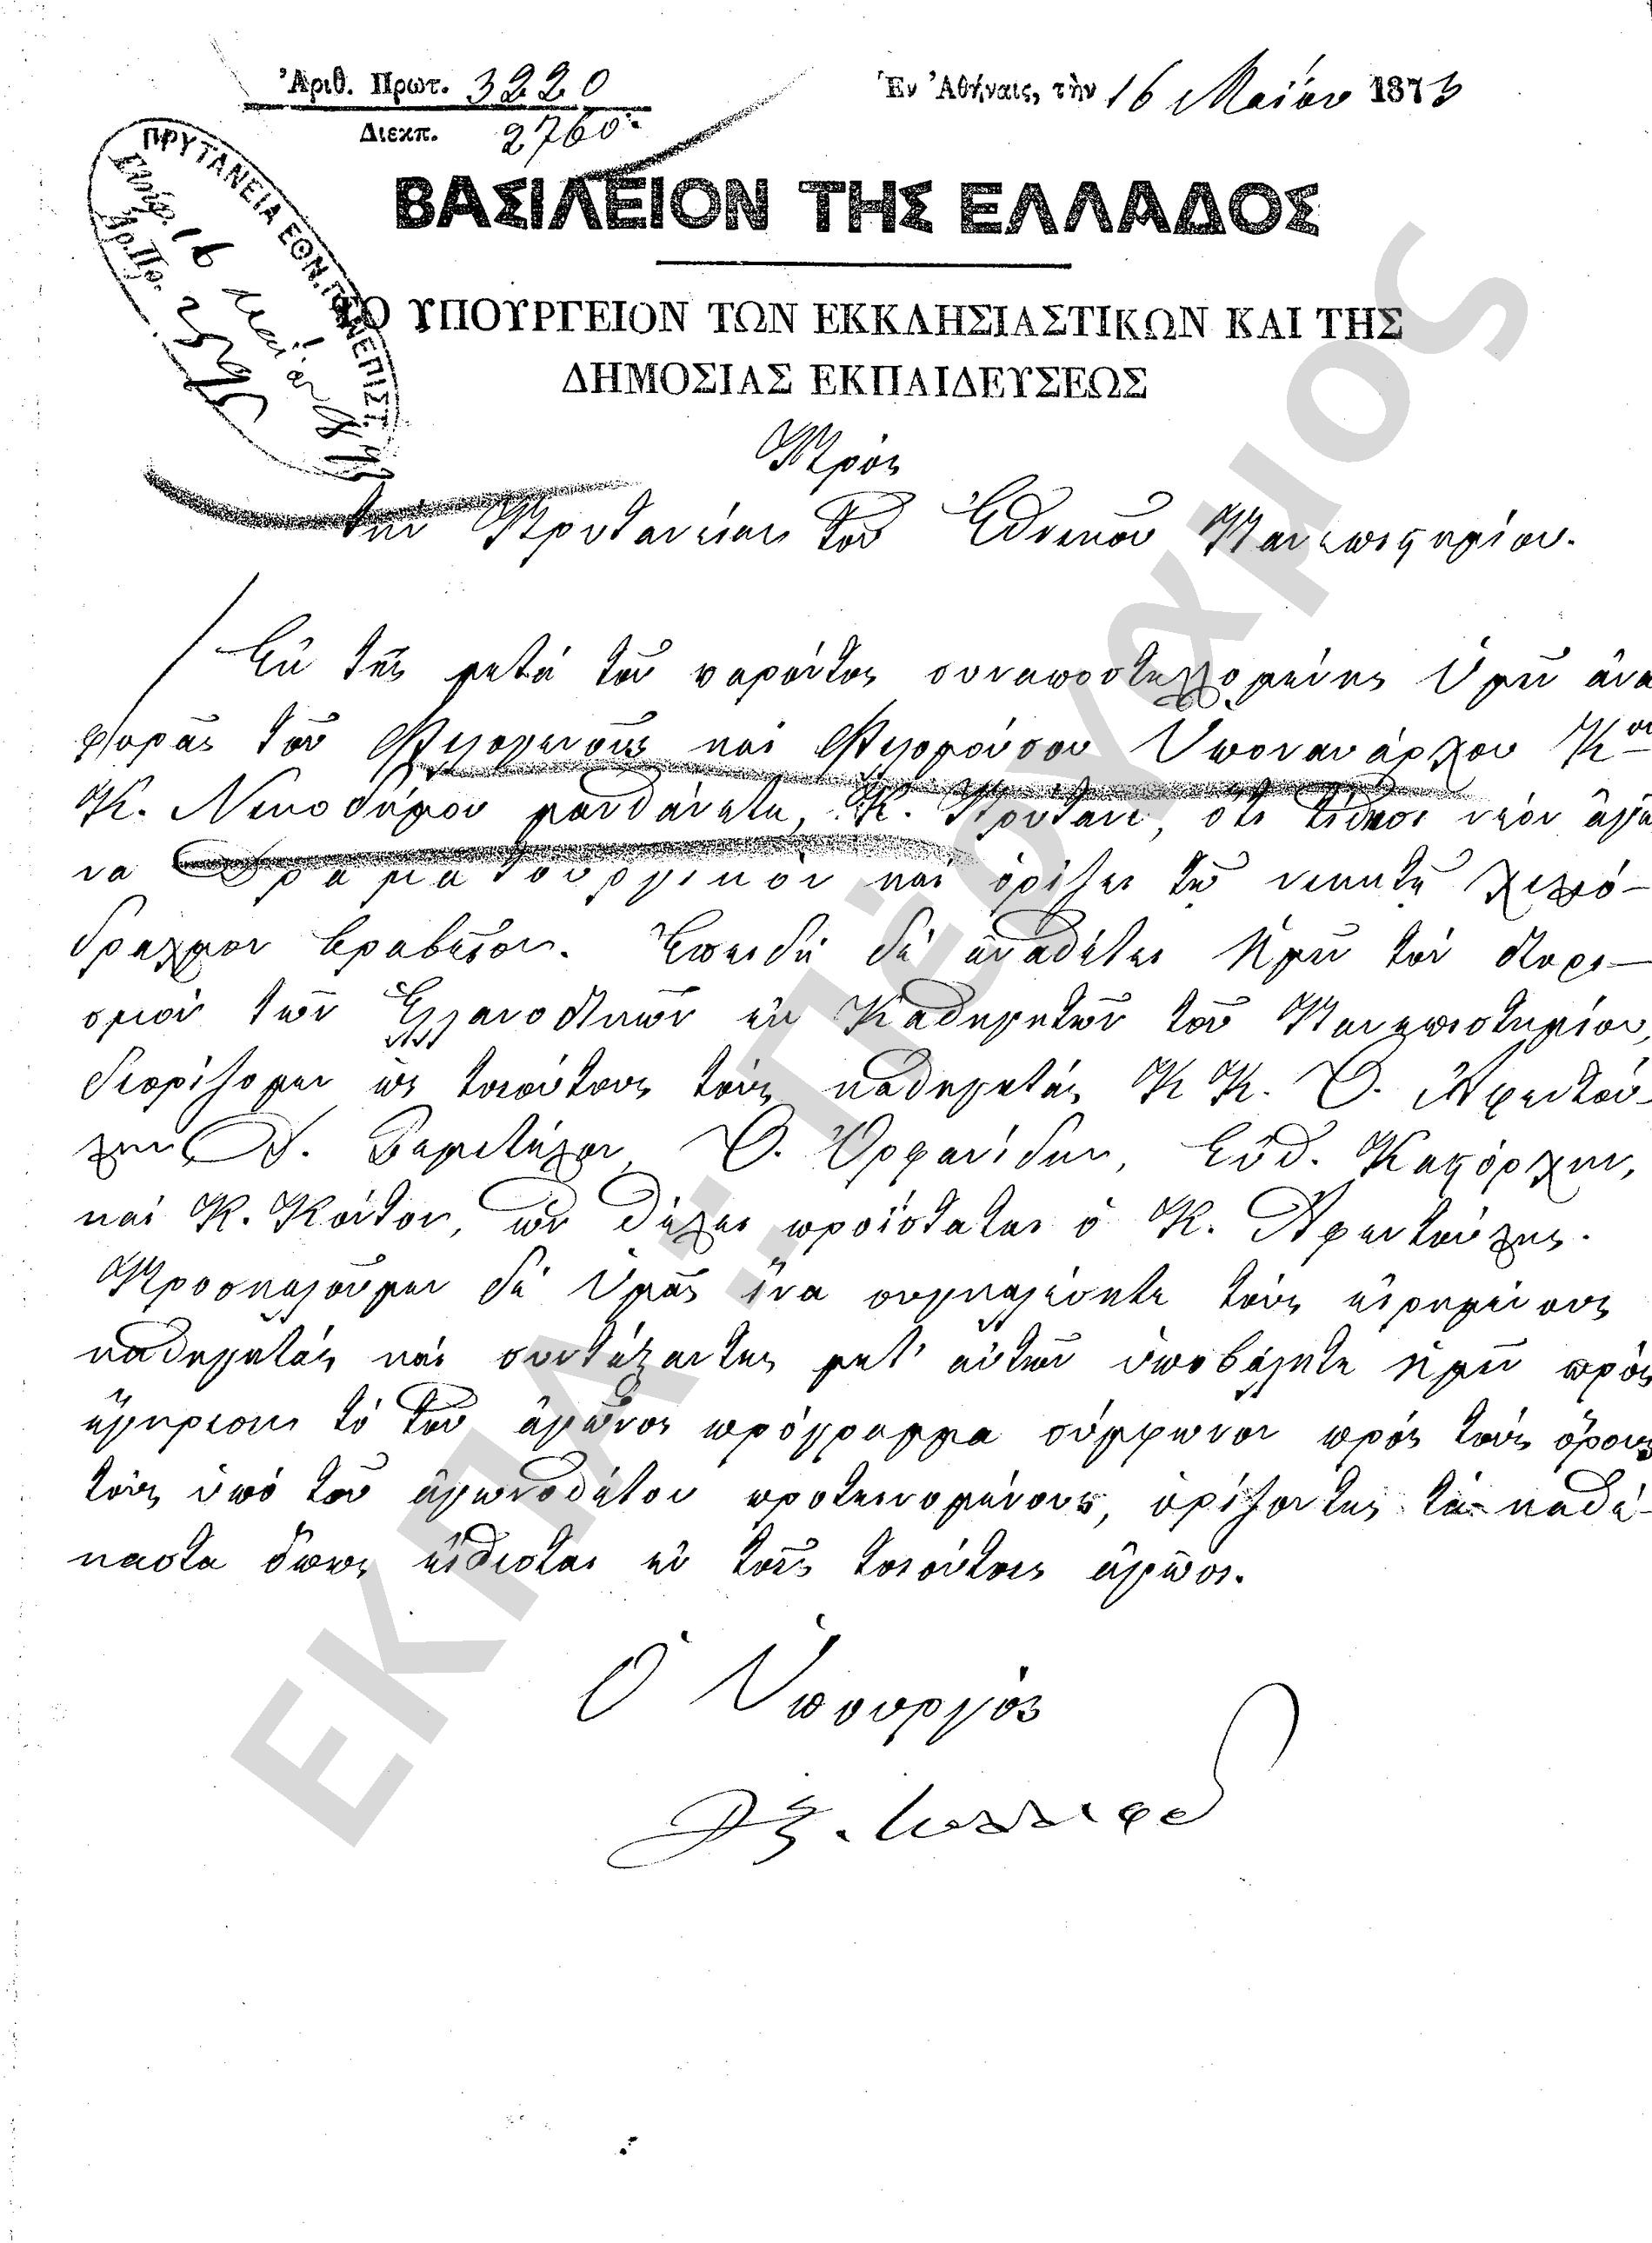 Ἀριθ. Πρωτ. 3220
Διεκπ. 2760
Ἐν Ἀθήναις, τὴν 16 Μαΐου 1873
ΠΡΥΤΑΝΕΙΑ ΕΘΝ. ΠΑΝΕΠΙΣΤ.
Ἀρ. Πρ.
ΒΑΣΙΛΕΙΟΝ ΤΗΣ ΕΛΛΑΔΟΣ
ΤΟ ΥΠΟΥΡΓΕΙΟΝ ΤΩΝ ΕΚΚΛΗΣΙΑΣΤΙΚΩΝ ΚΑΙ ΤΗΣ
ΔΗΜΟΣΙΑΣ ΕΚΠΑΙΔΕΥΣΕΩΣ
Πρὸς
τὴν Πρυτανείαν τοῦ Ἐθνικοῦ Πανεπιστημίου.
Ἐκ τῆς μετὰ τοῦ παρόντος συναποστελλομένης Ὑμῖν ἀνα
φορᾶς τοῦ φιλογενοῦς καὶ φιλομούσου Ὑποναυάρχου Κου
Κ. Νικοδήμου μανθάνετε, Κ. Πρύτανι, ὅτι τίθησι νέον ἀγῶ
να Δραματουργικὸν καὶ ὁρίζει τῷ νικητῇ χιλιό-
δραχμον βραβεῖον. Ἐπειδὴ δὲ ἀναθέτει Ἡμῖν τὸν διορι-
σμὸν τῶν Ἑλλανοδικῶν ἐκ Καθηγητῶν τοῦ Πανεπιστημίου,
διορίζομεν ὡς τοιούτους τοὺς καθηγητὰς Κ Κ. Θ. Ἀφεντού-
λην, Δ. Σεμιτέλον, Θ. Ὀρφανίδην, Εὐθ. Καστόρχην,
καὶ Κ. Κόντον, ὧν θέλει προΐσταται ὁ Κ. Ἀφεντούλης.
Προσκαλοῦμεν δὲ Ὑμᾶς ἵνα συγκαλέσητε τοὺς εἰρημένους
καθηγητὰς καὶ συντάξαντες μετ' αὐτῶν ὑποβάλητε Ἡμῖν πρὸς
ἔγκρισιν τὸ τοῦ ἀγῶνος πρόγραμμα σύμφωνον πρὸς τοὺς ὅρους
τοὺς ὑπὸ τοῦ ἀγωνοθέτου προτεινομένους, ὁρίζοντες τὰ καθέ-
καστα ὅπως εἴθισται ἐν τοῖς τοιούτοις ἀγῶσι.
Ὁ Ὑπουργὸς
ΕΚΠΑ: Πέργαμος